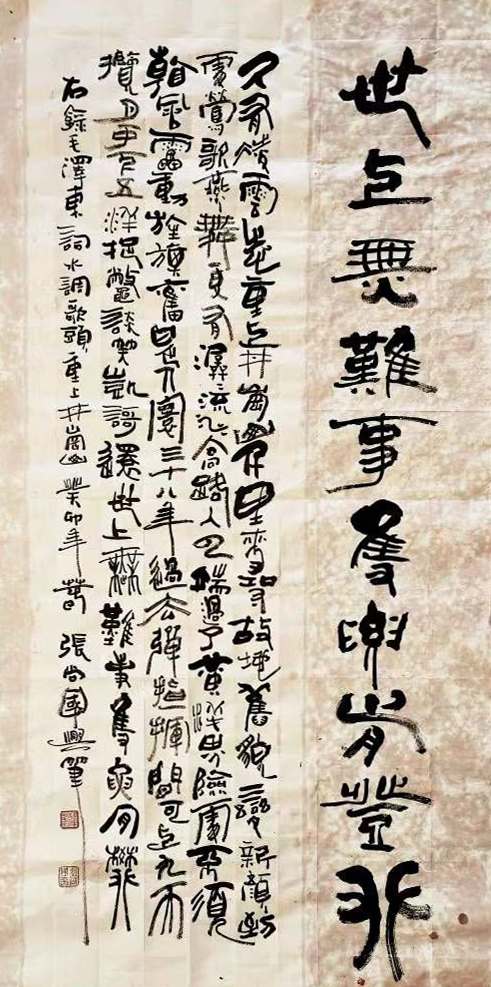 世上無難事隻要肯登攀
久有凌雲志重上井崗山千里來尋故地舊貌變新顏到
處鶯歌燕舞更有潺潺流水高路入雲端過了黃洋界險處不須
看風雷動旌旗奮是人寰三十八年過去彈指揮間可上九天
攬月可下五洋捉鱉談笑凱歌還世上無難事隻要肯攀
右錄毛澤東詞水調歌頭重上井崗山癸卯年春張尚國興筆